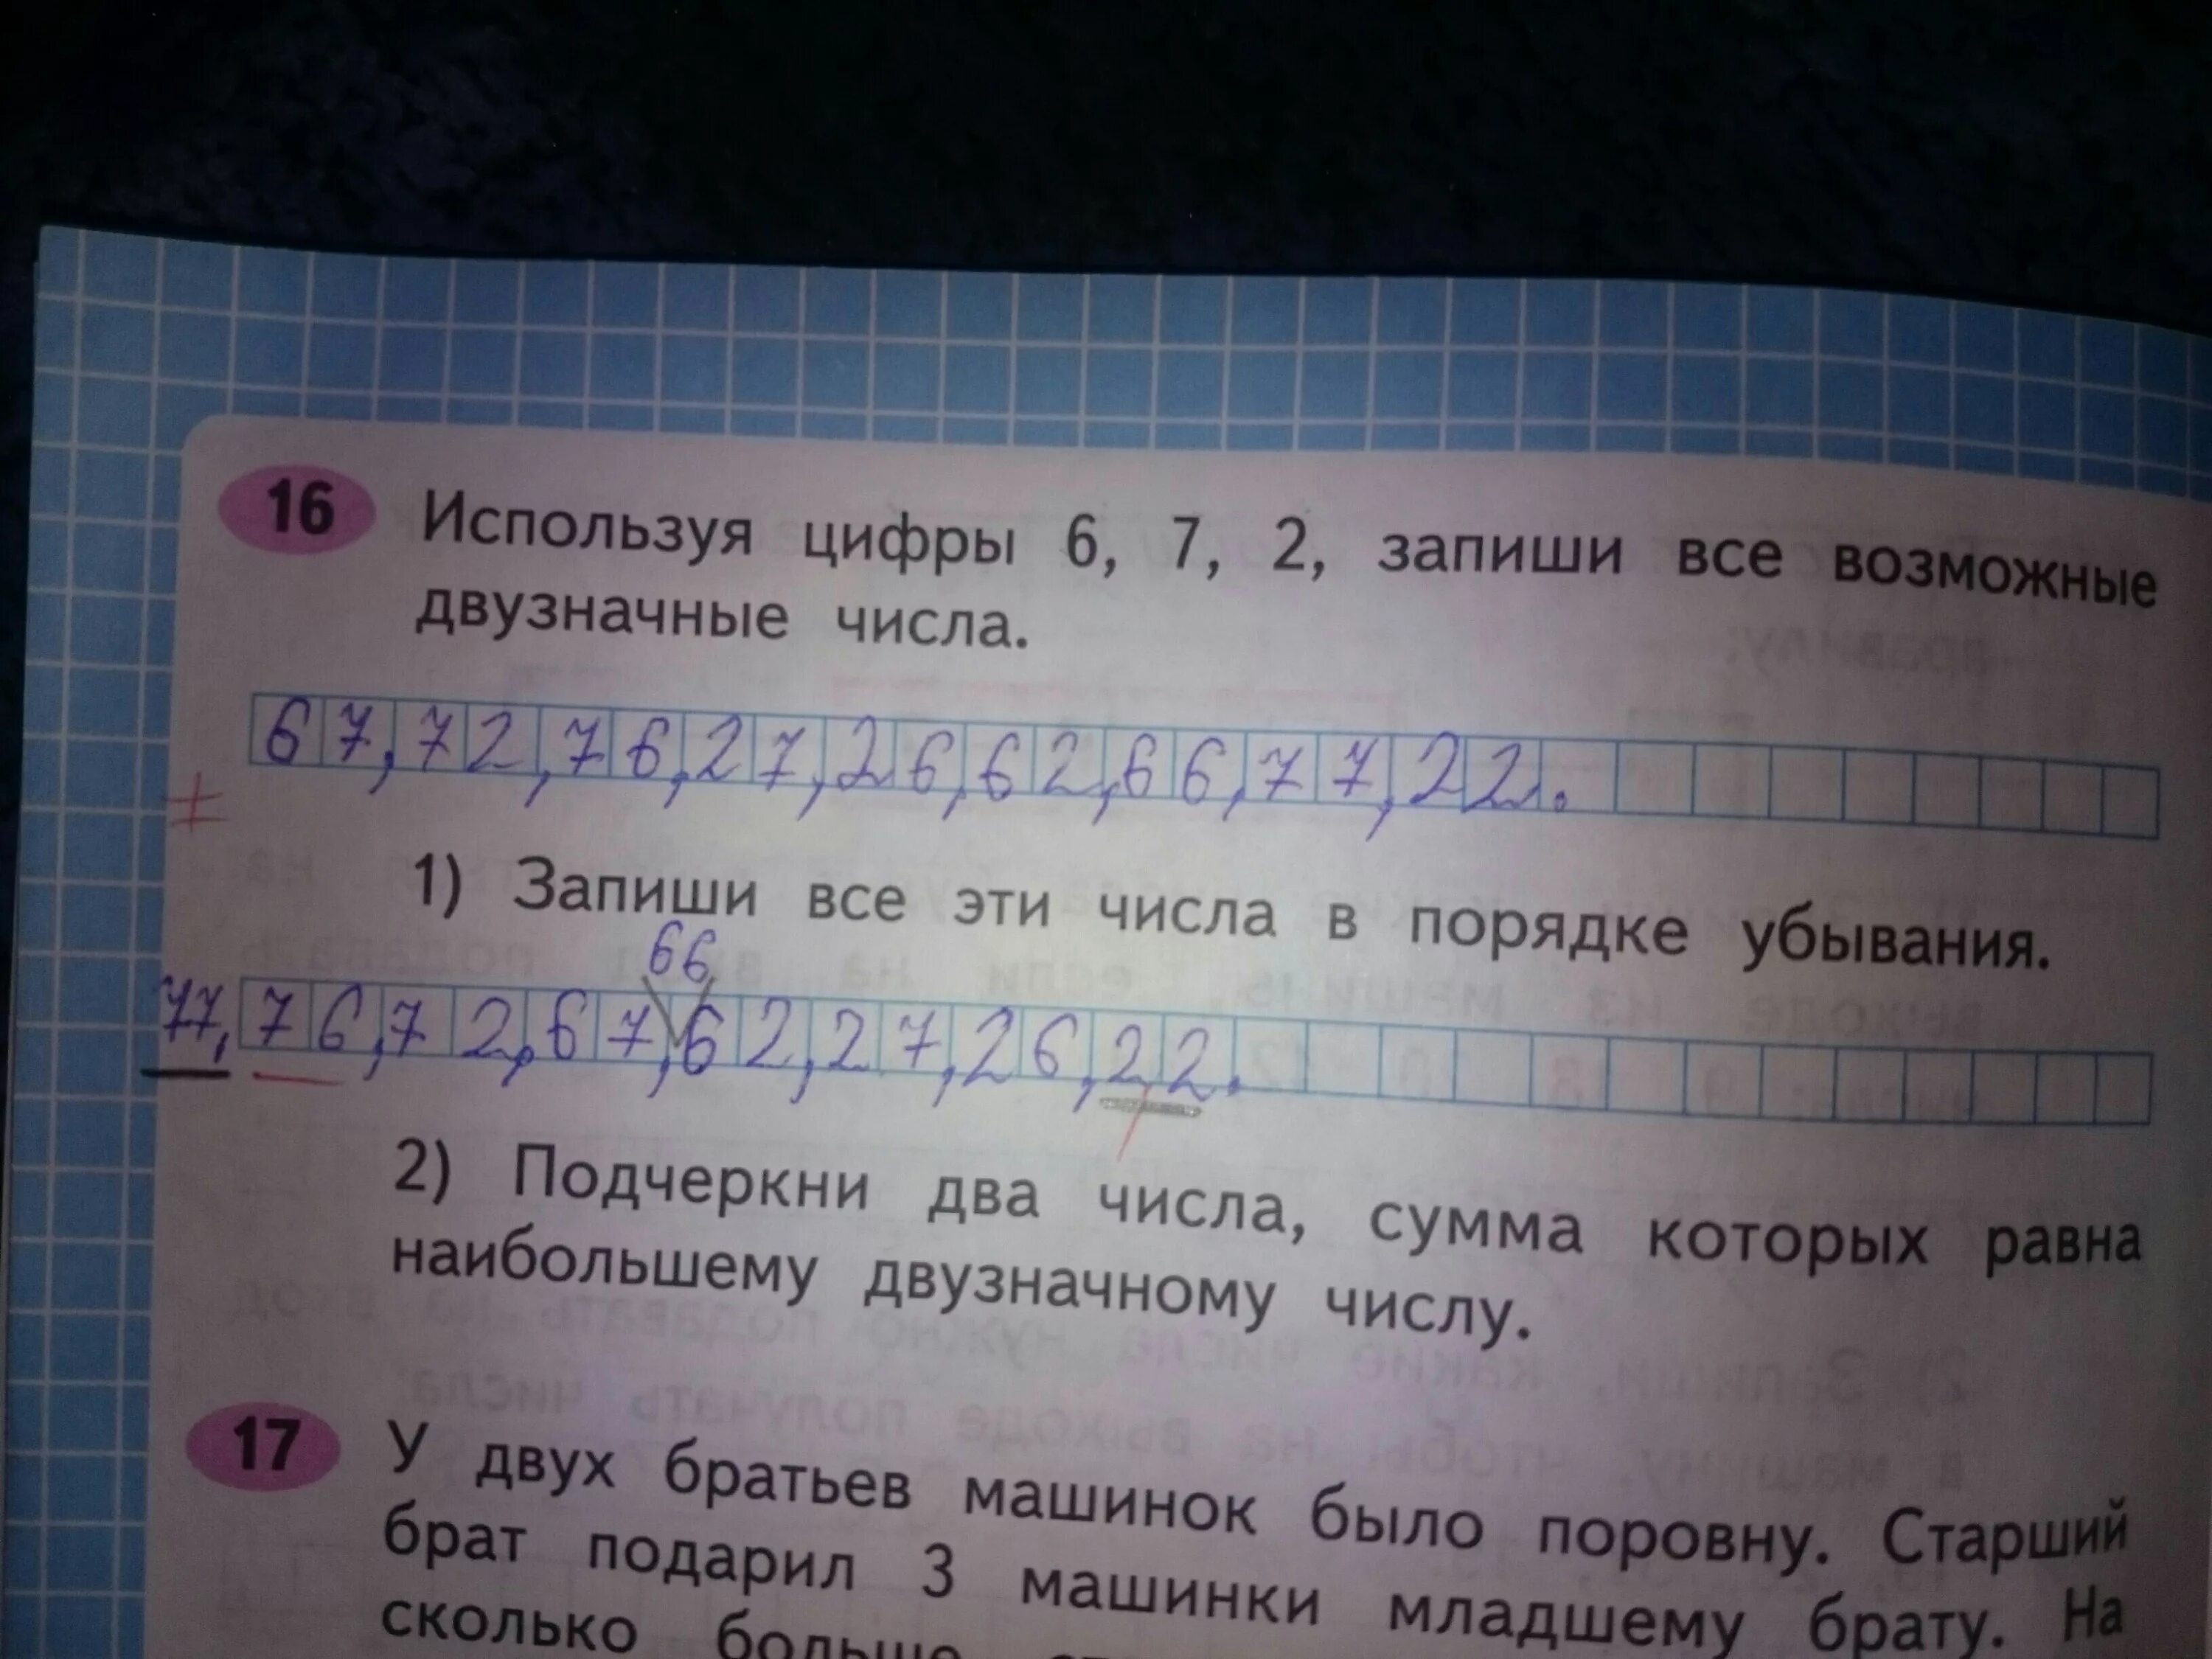 16 Используя цифры 6, 7, 2, запиши все возможные
двузначные числа.
67, 72, 76, 27, 26, 62, 66, 77, 22.
+
1) Запиши все эти числа в порядке убывания.
66
77, 76, 72, 67, 62, 27, 26, 22.
2) Подчеркни два числа, сумма которых равна
наибольшему двузначному числу.
17 У двух братьев машинок было поровну. Старший
брат подарил 3 машинки младшему брату. На
сколько больше